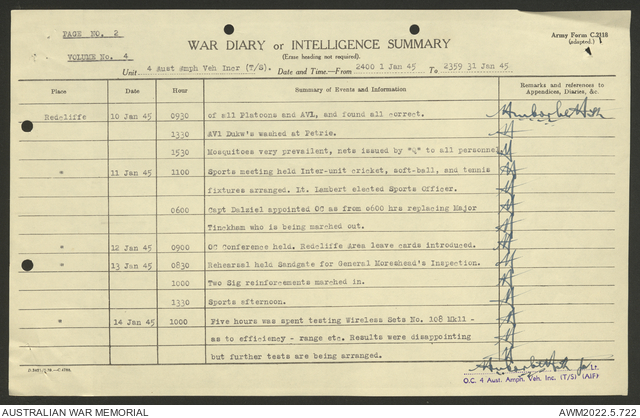 PAGE NO. 2
Army Form C.2118
WAR DIARY or INTELLIGENCE SUMMARY
(adapted.)
VOLUME No. 4
(Erase heading not required).
Unit 4 Aust Amph Veh Incr (T/S). Date and Time—From 2400 1 Jan 45 To 2359 31 Jan 45.
Place Date Hour Summary of Events and Information Remarks and references to Appendices, Diaries, &c.
Redcliffe 10 Jan 45 0930 of all Platoons and AVL, and found all correct.
1330 AVL Dukw's washed at Petrie.
1530 Mosquitoes very prevailent, nets issued by "Q" to all personnel
" 11 Jan 45 1100 Sports meeting held Inter-unit cricket, soft-ball, and tennis
fixtures arranged. Lt. Lambert elected Sports Officer.
0600 Capt Dalziel appointed OC as from 0600 hrs replacing Major
Tinckham who is being marched out.
" 12 Jan 45 0900 OC Conference held. Redcliffe Area leave cards introduced.
" 13 Jan 45 0830 Rehearsel held Sandgate for General Moreshead's Inspection.
1000 Two Sig reinforcements marched in.
1330 Sports efternoon.
" 14 Jan 45 1000 Five hours was spent testing Wireless Sets No. 108 Mk11 -
as to efficiency - range etc. Results were disappointing
but further tests are being arranged.
Lt.
O.C. 4 Aust. Amph. Veh. Inc. (T/S) (AIF)
AUSTRALIAN WAR MEMORIAL
AWM2022.5.722